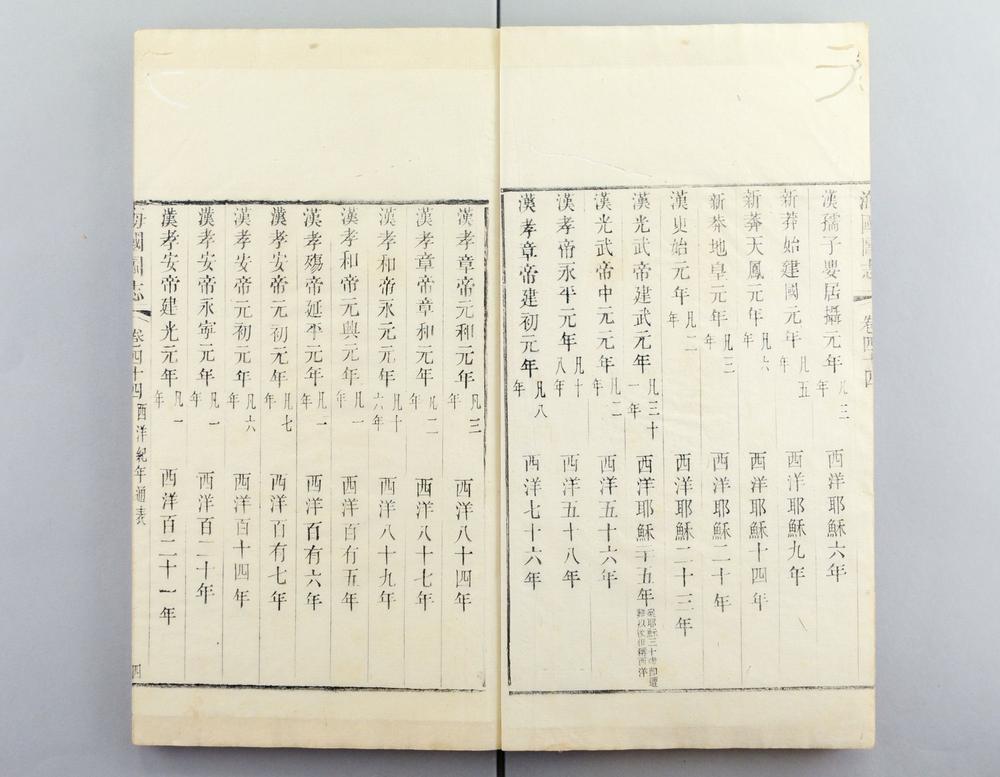 海國圖志 卷四十四
漢孺子嬰居攝元年 凡三年 西洋耶穌六年
新莽始建國元年 凡五年 西洋耶穌九年
新莽天鳳元年 凡六年 西洋耶穌十四年
新莽地皇元年 凡三年 西洋耶穌二十年
漢更始元年 凡二年 西洋耶穌二十三年
漢光武帝建武元年 凡三十一年 西洋耶穌二十五年
漢光武帝中元元年 凡二年 西洋五十六年
漢孝帝永平元年 凡十八年 西洋五十八年
漢孝章帝建初元年 凡八年 西洋七十六年
漢孝章帝元和元年 凡三年 西洋八十四年
漢孝章帝章和元年 凡二年 西洋八十七年
漢孝和帝永元元年 凡十六年 西洋八十九年
漢孝和帝元興元年 凡一年 西洋百有五年
漢孝殤帝延平元年 凡一年 西洋百有六年
漢孝安帝元初元年 凡七年 西洋百有七年
漢孝安帝元初元年 凡六年 西洋百十四年
漢孝安帝永寧元年 凡一年 西洋百二十年
漢孝安帝建光元年 凡一年 西洋百二十一年
海國圖志 卷四十四 西洋紀年通表 四